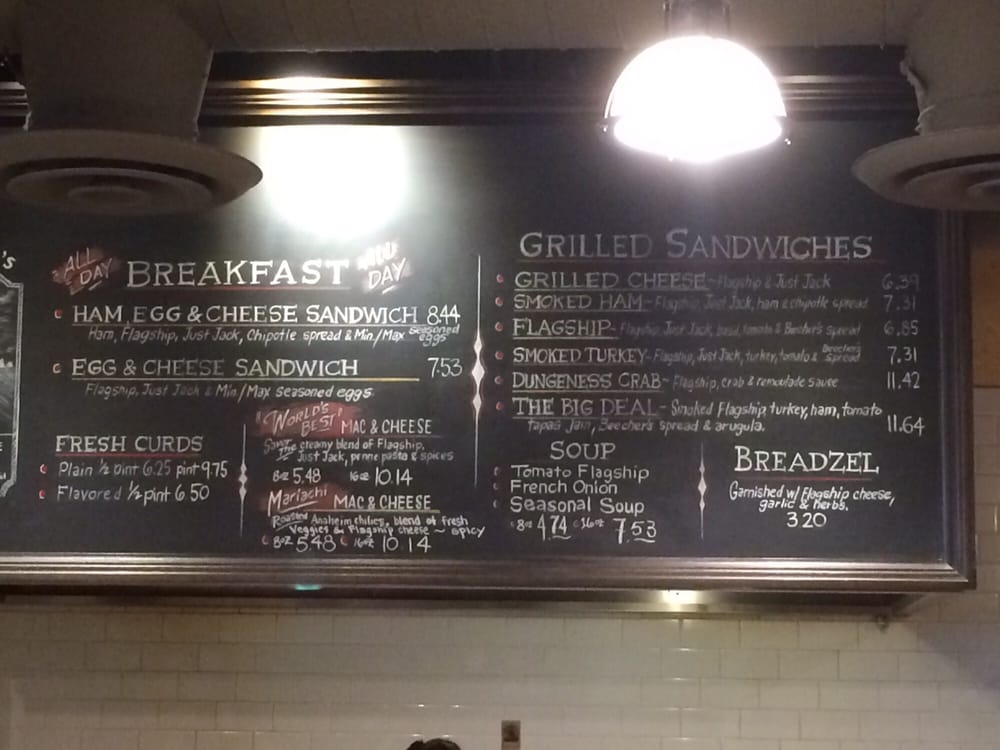 's
ALL DAY BREAKFAST ALL DAY
HAM, EGG & CHEESE SANDWICH 8.44
Ham, Flagship, Just Jack, Chipotle spread & Min/Max seasoned eggs
EGG & CHEESE SANDWICH 7.53
Flagship, Just Jack & Min/Max seasoned eggs.
FRESH CURDS
Plain ½ pint 6.25 pint 9.75
Flavored ½ pint 6 50
"WORLD'S BEST" MAC & CHEESE
creamy blend of Flagship,
Just Jack, penne pasta & spices
8oz 5.48 16oz 10.14
Mariachi MAC & CHEESE
Roasted Anaheim chilies, blend of fresh
Veggies & Flagship cheese ~ spicy
8oz 5.48 16oz 10.14
GRILLED SANDWICHES
GRILLED CHEESE ~ Flagship & Just Jack 6.39
SMOKED HAM ~ Flagship, Just Jack, ham & chipotle spread 7.31
FLAGSHIP ~ Flagship, Just Jack, basil, tomato & Beecher's spread 6.85
SMOKED TURKEY ~ Flagship, Just Jack, turkey, tomato & Beecher's spread 7.31
DUNGENESS CRAB ~ Flagship, crab & remoulade sauce 11.42
THE BIG DEAL ~ Smoked Flagship, turkey, ham, tomato
tapas Jam, Beecher's spread & arugula. 11.64
SOUP
Tomato Flagship
French Onion
Seasonal Soup
8oz 4.74 16oz 7.53
BREADZEL
Garnished w/ Flagship cheese,
garlic & herbs.
3 20